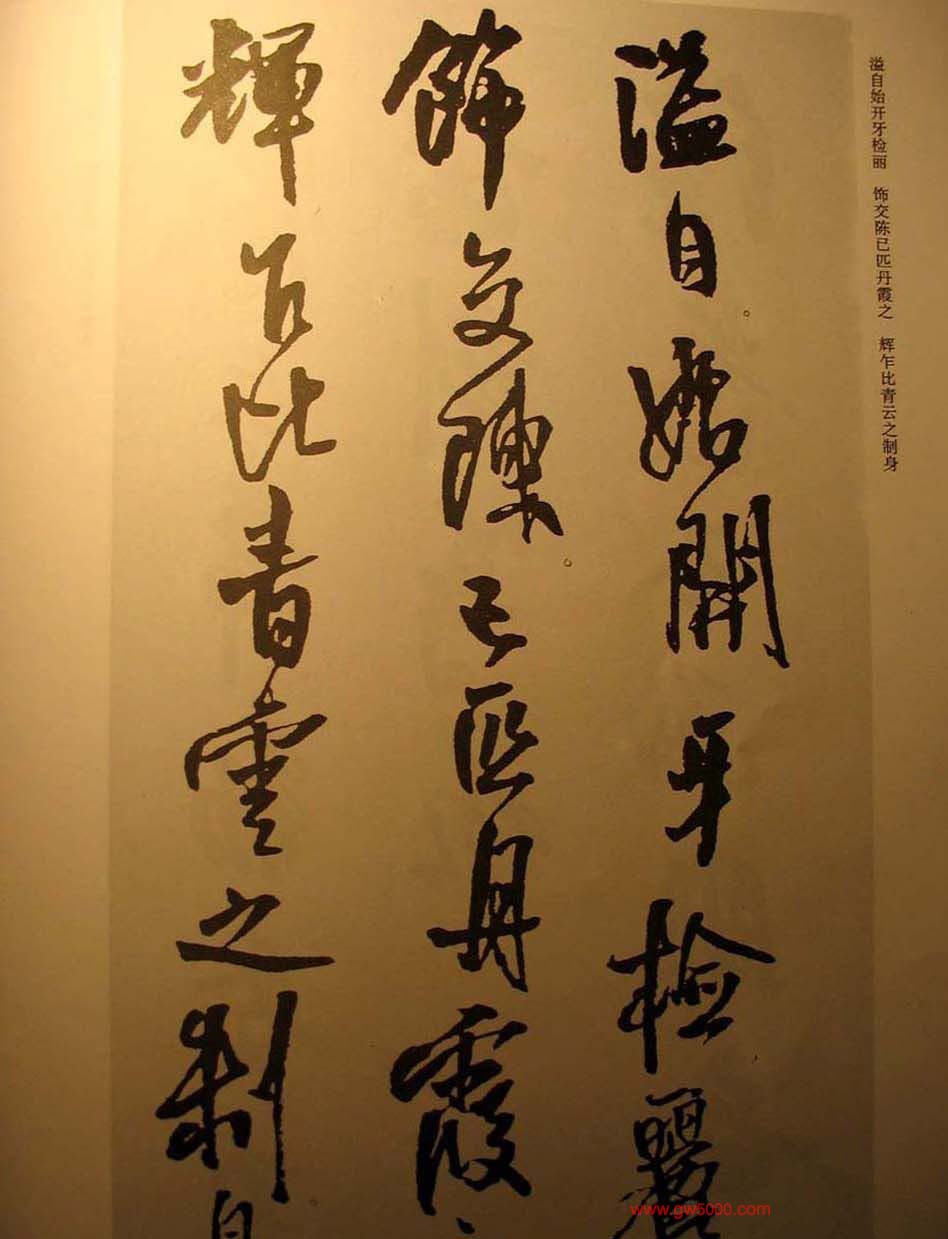 溢自始开牙检丽 饰交陈已匹丹霞之 辉乍比青云之制身
溢自始開牙檢麗
飾交陳已匹丹霞
輝乍比青雲之制
www.gw5000.com